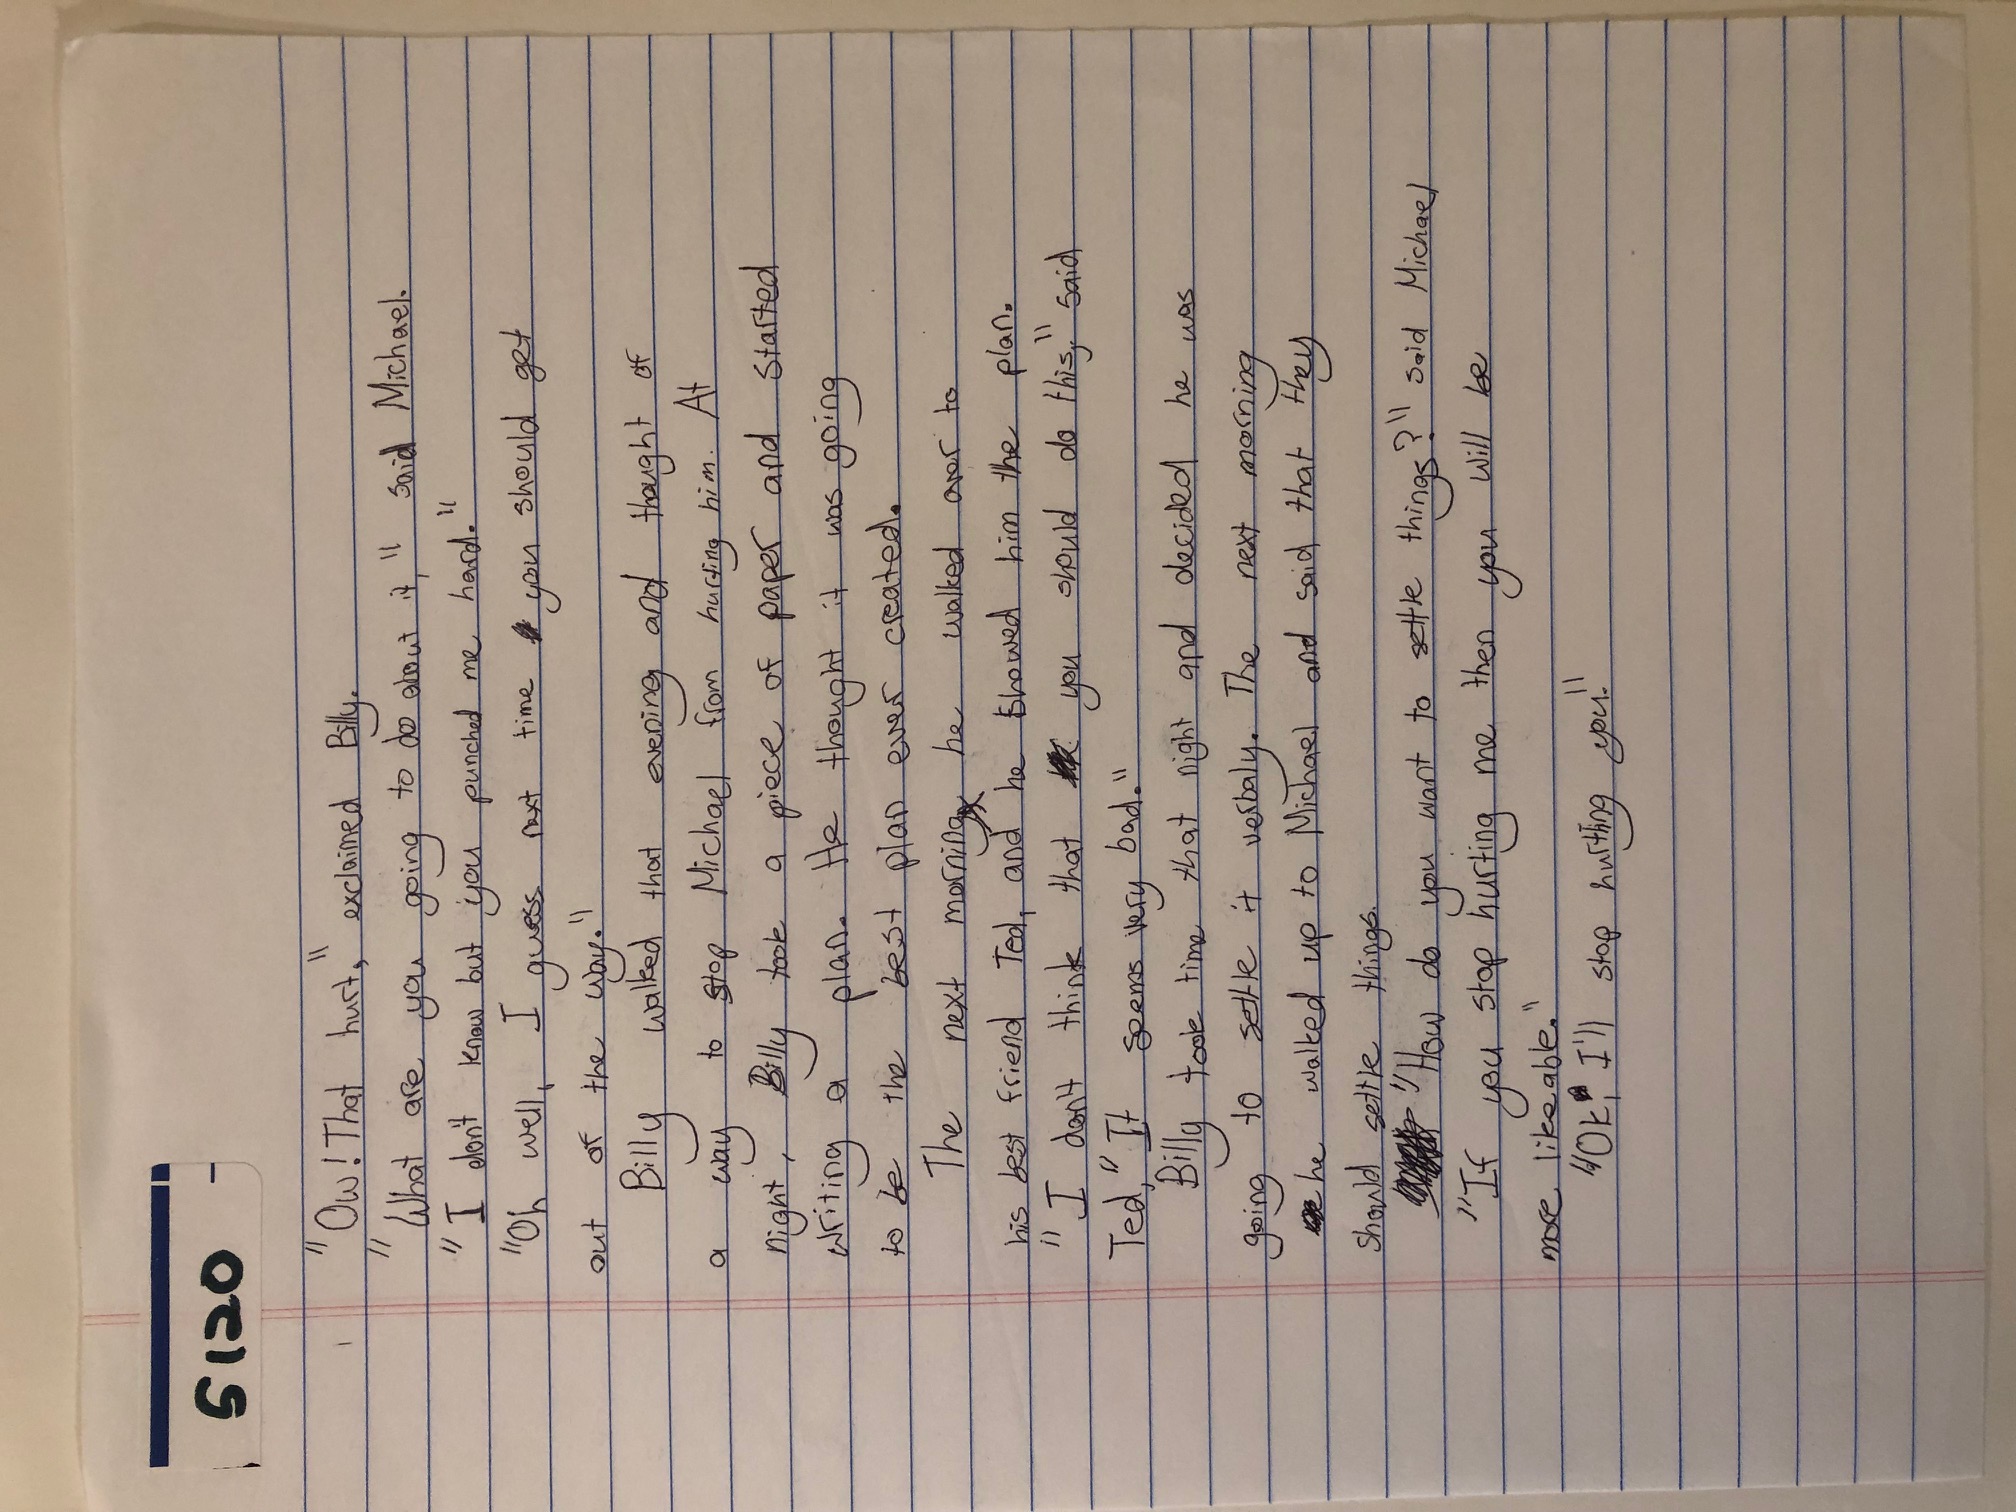 5120
"Ow! That hurt," exclaimed Billy.
"What are you going to do about it," said Michael.
"I don't know but you punched me hard."
"Oh well, I guess next time you should get
out of the way."
Billy walked that evening and thought of
a way to stop Michael from hurting him. At
night, Billy took a piece of paper and started
writing a plan. He thought it was going
to be the best plan ever created.
The next morning he walked over to
his best friend Ted, and he showed him the plan.
"I don't think that you should do this," said
Ted, "It seems very bad."
Billy took time that night and decided he was
going to settle it verbaly. The next morning
he walked up to Michael and said that they
should settle things.
"How do you want to settle things?" said Michael
"If you stop hurting me then you will be
more likeable."
"Ok, I'll stop hurting you."